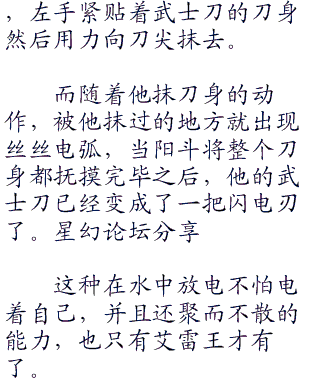 ，左手紧贴着武士刀的刀身
然后用力向刀尖抹去。
而随着他抹刀身的动
作，被他抹过的地方就出现
丝丝电弧，当阳斗将整个刀
身都抚摸完毕之后，他的武
士刀已经变成了一把闪电刃
了。星幻论坛分享
这种在水中放电不怕电
着自己，并且还聚而不散的
能力，也只有艾雷王才有
了。